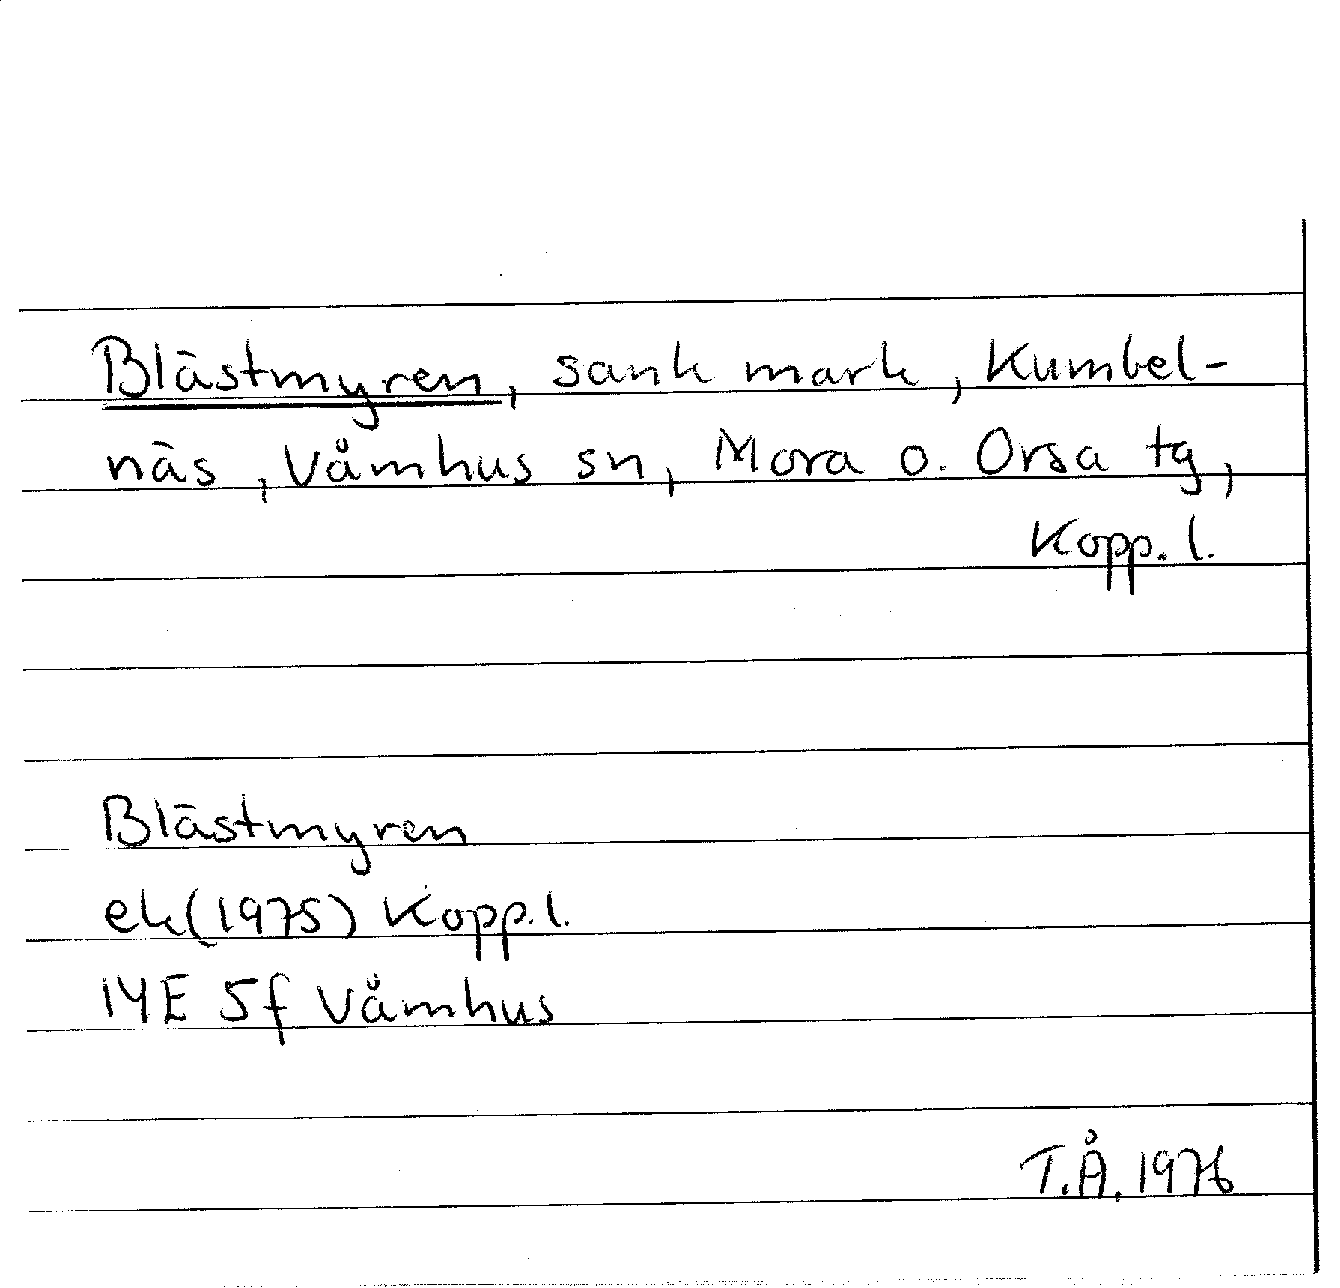 Blästmyren, sank mark, Kumbel-
näs, Våmhus sn, Mora o. Orsa tg,
Kopp. l.
Blästmyren
ek(1975) Kopp. l.
14E 5f Våmhus
T.Å. 1976